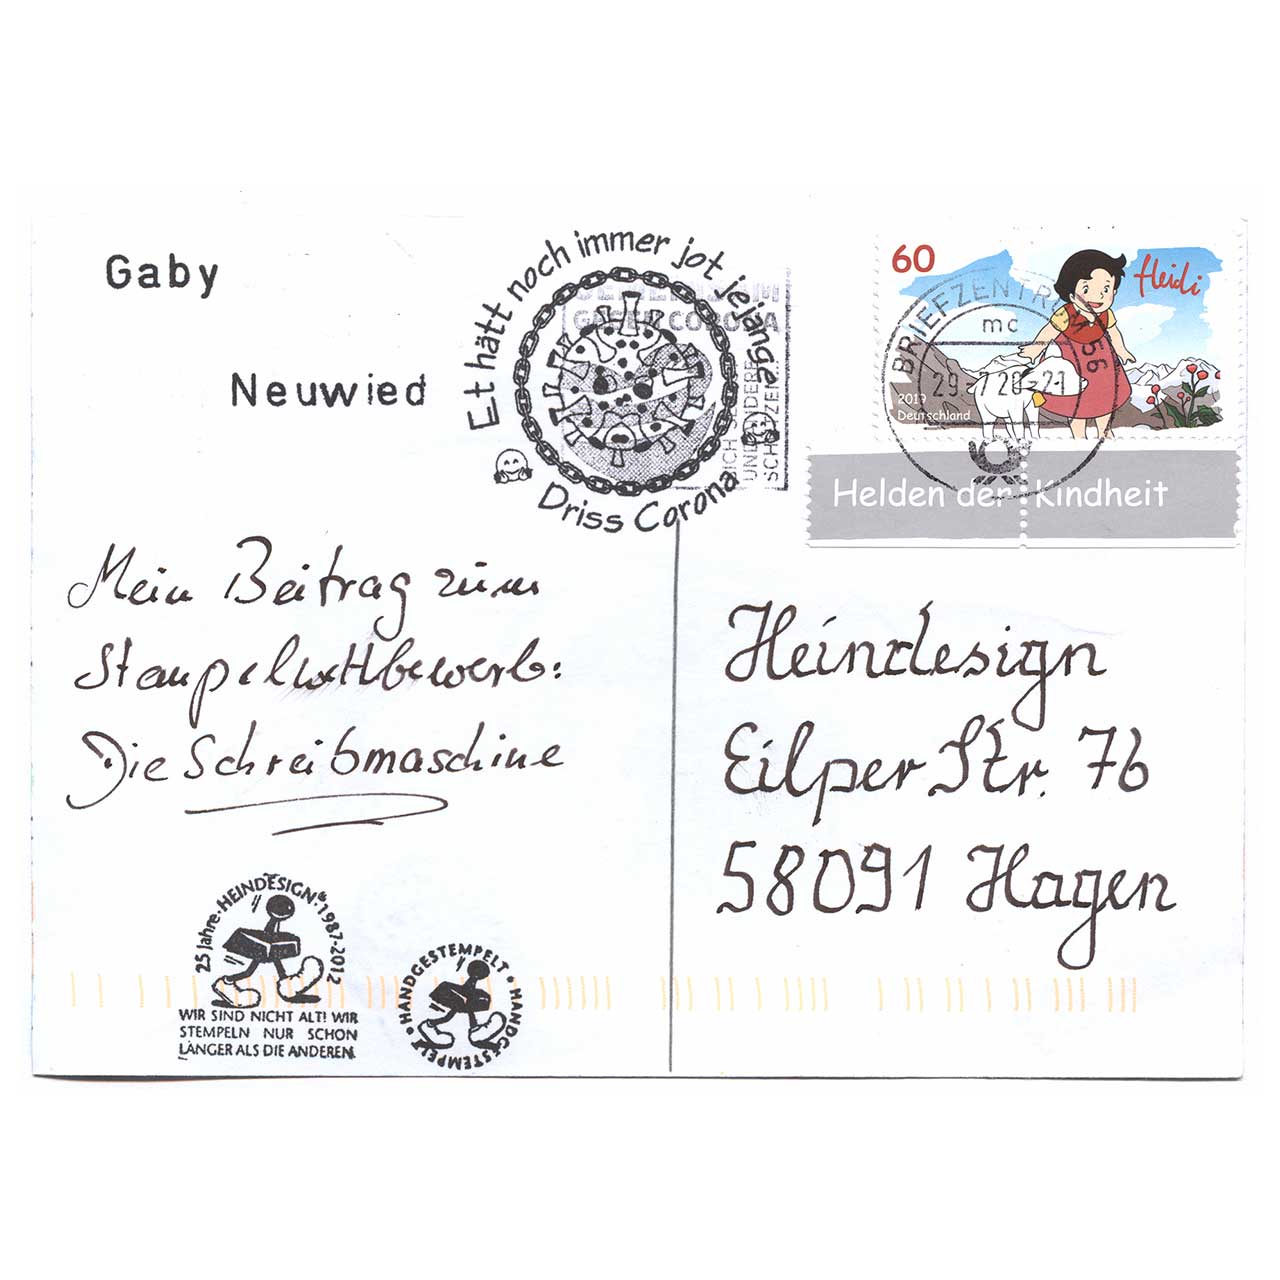 Gaby
Neuwied
Et hätt noch immer jot jejange
Driss Corona
GEMEINSAM
GEGEN CORONA
SICH
UND ANDERE
SCHÜTZEN
60
Heidi
2019
Deutschland
BRIEFZENTRUM 56
mc
29.-7.20-21
Helden der Kindheit
Mein Beitrag zum
Stempelwettbewerb:
Die Schreibmaschine
Heindesign
Eilper Str. 76
58091 Hagen
25 Jahre · HEINDESIGN® · 1987-2012
WIR SIND NICHT ALT! WIR
STEMPELN NUR SCHON
LÄNGER ALS DIE ANDEREN.
HANDGESTEMPELT · HANDGESTEMPELT ·